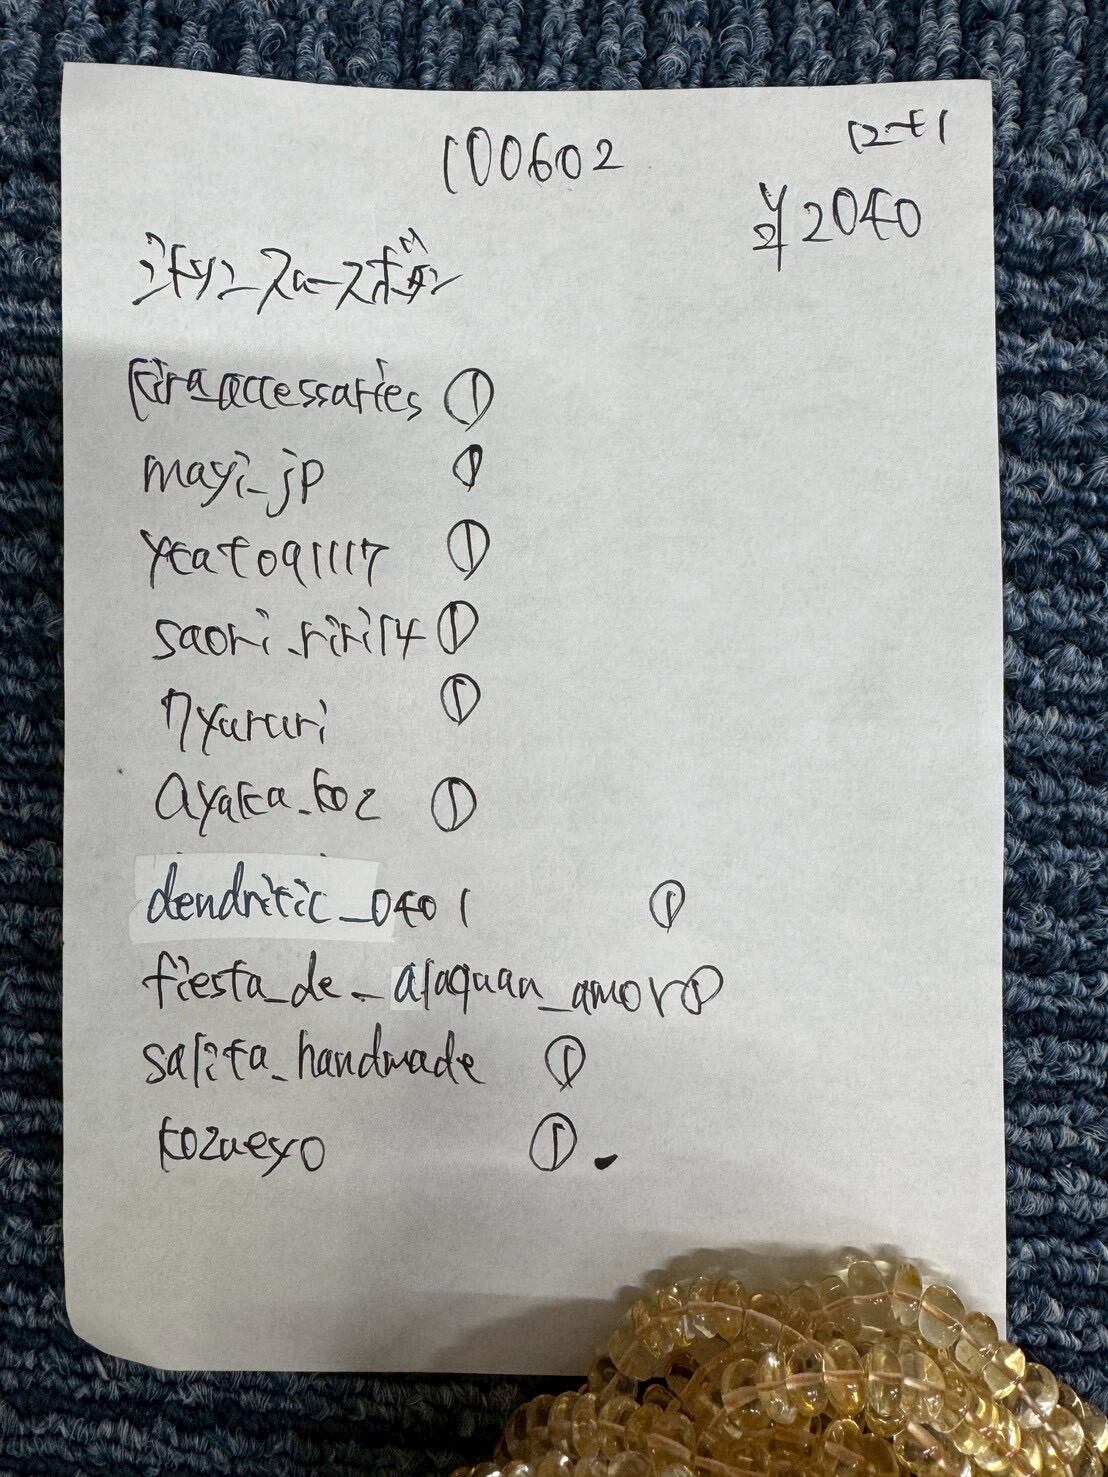 100602
12-E1
¥2040
シトリン スムースボタン
kira_accessaries ①
mayi_jp ①
ykato91117 ①
saori_riri14 ①
nyaruri ①
ayaka_koz ①
dendritic_0401 ①
fiesta_de_alaquan_amor ①
salita_handmade ①
kozueyo ①